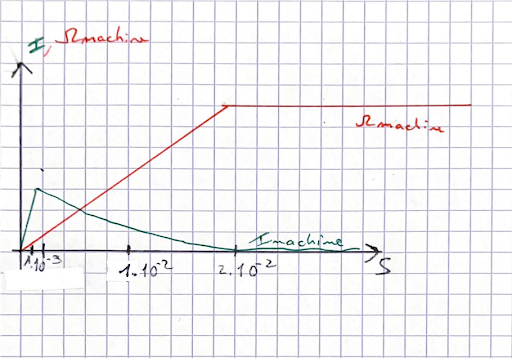 I, Ωmachine
Ωmachine
Imachine
1.10-3
1.10-2
2.10-2
S